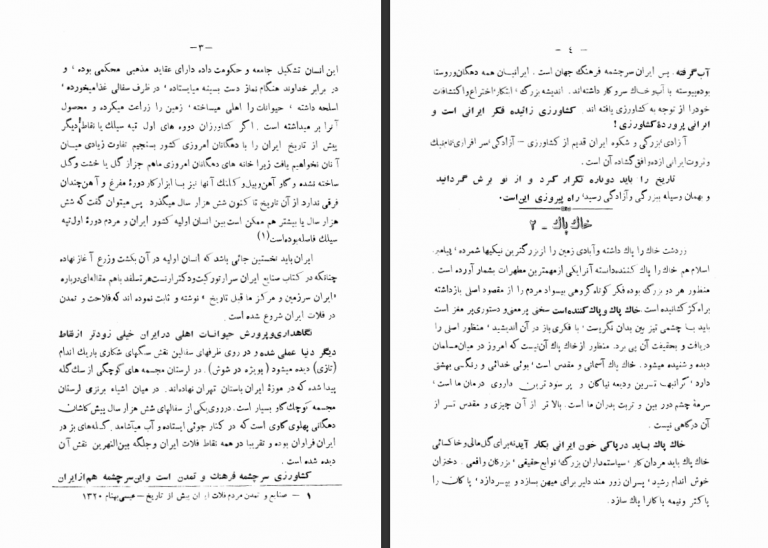 -۳-
این انسان تشکیل جامعه و حکومت داده دارای عقاید مذهبی محکمی بوده ؛ و
در برابر خداوند هنگام نماز دست بسینه میایستاده ؛ در ظرف سفالی غذا میخورده ؛
اسلحه داشته ؛ حیوانات را اهلی میساخته ؛ زمین را زراعت میکرده و محصول
آنرا بر میداشته است . اگر کشاورزان دوره های اول تپه سیلك یا نقاط دیگر
پیش از تاریخ ایران را با دهگانان امروزی کشور بسنجیم تفاوت زیادی میان
آنان نخواهیم یافت زیرا خانه های دهگانان امروزی ماهم جز از گل یا خشت و گل
ساخته نشده و گاو آهن و بیل و کلنك آنها نیز با ابزار کار دورۀ مفرغ و آهن چندان
فرقی ندارد از آن تاریخ تا کنون شش هزار سال میگذرد پس میتوان گفت که شش
هزار سال یا بیشتر هم ممکن است بین انسان اولیه کشور ایران و مردم دورۀ اول تپه
سیلك فاصله بوده است (۱)
ایران باید نخستین جائی باشد که انسان اولیه در آن بکشت وزرع آغاز نهاده
چنانکه در کتاب صنایع ایران سرارتورکیت و دکتر ارنست هرتسفلد باهم مقاله ای درباره
«ایران سرزمین و مرکز ما قبل تاریخ » نوشته و ثابت نموده اند که فلاحت و تمدن
در فلات ایران شروع شده است .
نگاهداری و پرورش حیوانات اهلی در ایران خیلی زودتر از نقاط
دیگر دنیا عملی شده و در روی ظرفهای سفالین نقش سگهای شکاری باریك اندام
(تازی) دیده میشود (بویژه در شوش) . در لرستان مجسمه های کوچکی از سك گله
پیدا شده که در موزۀ ایران باستان تهران نهاده‌اند. در میان اشیاء برنزی لرستان
مجسمه کوچك گاو بسیار است . در روی یکی از سفالهای شش هزار سال پیش کاشان
دهگانی پهلوی گاوی است که در کنار جوئی ایستاده و آب میآشامد. گله‌های بز در
ایران فراوان بوده و تقریبا در همه نقاط فلات ایران و جلگه بین النهرین نقش آن
دیده شده است .
کشاورزی سرچشمه فرهنك و تمدن است و این سرچشمه هم از ایران
۱ - صنایع و تمدن مردم فلات ایران پیش از تاریخ - عیسی بهنام ۱۳۲۰
- ٤ -
آب گرفته . پس ایران سرچشمه فرهنگ جهان است . ایرانیان همه دهگان و روستا
بوده پیوسته با آب و خاك سرو کار داشته‌اند. اندیشه بزرگ ؛ ابتکار اختراع و اکتشافات
خود را از توجه به کشاورزی یافته اند. کشاورزی زائیده فکر ایرانی است و
ایرانی پروردۀ کشاورزی !
آزادی بزرگی و شکوه ایران قدیم از کشاورزی - آزادگی سرافرازی
و ثروت ایرانی ازده و افق گشاده آن است .
تاریخ را باید دوباره تکرار کرد و از نو برش گردانید
و بهمان وسیله بزرگی و آزادگی رسید؛ راه پیروزی این‌است.
خاك پاك - ۲
زردشت خاك را پاك داشته و آبادی زمین را از بزرگترین نیکیها شمرده ؛ پیامبر
اسلام هم خاك را پاك کننده دانسته آنرا یکی از مهمترین مطهرات بشمار آورده است .
منظور هر دو بزرگ بوده فکر کوتاه گروهی بیسواد مردم را از مقصود اصلی بازداشته
براه کژ کشانیده است خاك پاك و پاك کننده است سخنی پرمعنی و دستوری پر مغز است
باید با چشمی تیز بین بدان نگریست ؛ با فکری باز در آن اندیشید ؛ منظور اصلی را
دریافت و بحقیقت آن پی برد. منظور از خاك پاك آن نیست که امروز در میان مسلمان
دیده و شنیده میشود . خاك پاك آسمانی و مقدس است ؛ بوئی خدائی و رنگی بهشتی
دارد ؛ گرانبها ترین ودیعه نیاکان و پر سود ترین داروی درمان ما است ؛
سرمۀ چشم دور بین و تربت پدران ما است. بالا تر از آن چیزی و مقدس تر از
آن درگاهی نیست .
خاك پاك باید در پاکی خون ایرانی بکار آید نه برای گل مالی و خاکمالی
خاك پاك باید مردان کار ؛ سیاستمداران بزرگ؛ نوابغ حقیقی ؛ بزرگان واقعی . دختران
خوش اندام رشید ؛ پسران زور مند دلیر برای میهن بسازد و بپردازد ؛ پاکان را
پاکتر و نیمه پاکان را پاك سازد .